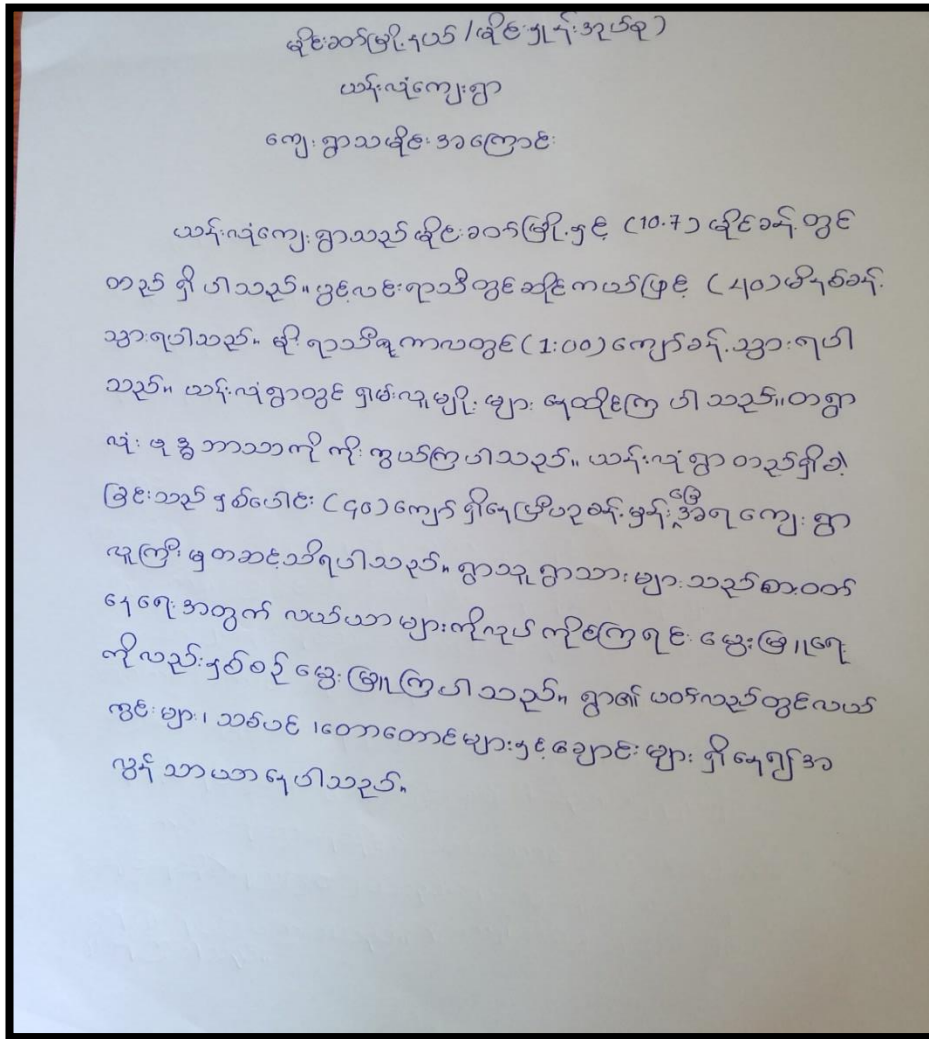 မိုင်းခတ်မြို့နယ် (မိုင်းရှုန်းအုပ်စု)
ယန်းလုံကျေးရွာ
ကျေးရွာသမိုင်းအကြောင်း
ယန်းလုံကျေးရွာသည် မိုင်းခတ်မြို့နှင့် (10.7) မိုင်ခန့်တွင်
တည်ရှိပါသည်။ ပွင့်လင်းရာသီတွင်ဆိုင်ကယ်ဖြင့် (၄၀) မိနစ်ခန့်
သွားရပါသည်။ မိုးရာသီဥကာလတွင် (1:00) ကျော်ခန့်သွားရပါ
သည်။ ယန်းလုံရွာတွင် ရှမ်းလူမျိုးများ နေထိုင်ကြပါသည်။ တရွာ
လုံး ဗုဒ္ဓဘာသာကို ကိုးကွယ်ကြပါသည်။ ယန်းလုံရွာ တည်ရှိခဲ့
ခြင်းသည် နှစ်ပေါင်း (၄၀) ကျော် ရှိနေပြီဟုခန့်မှန်းခြေအရ ကျေးရွာ
လူကြီးမှတဆင့်သိရပါသည်။ ရွာသူရွာသားများသည်စားဝတ်
နေရေးအတွက် လယ်ယာများကိုလုပ်ကိုင်ကြရင်း မွေးမြူရေး
ကိုလည်းနှစ်စဉ် မွေးမြူကြပါသည်။ ရွာ၏ ပတ်လည်တွင်လယ်
ကွင်းများ၊ သစ်ပင်၊ တောတောင်များနှင့်ချောင်းများ ရှိနေ၍အ
လွန်သာယာနေပါသည်။